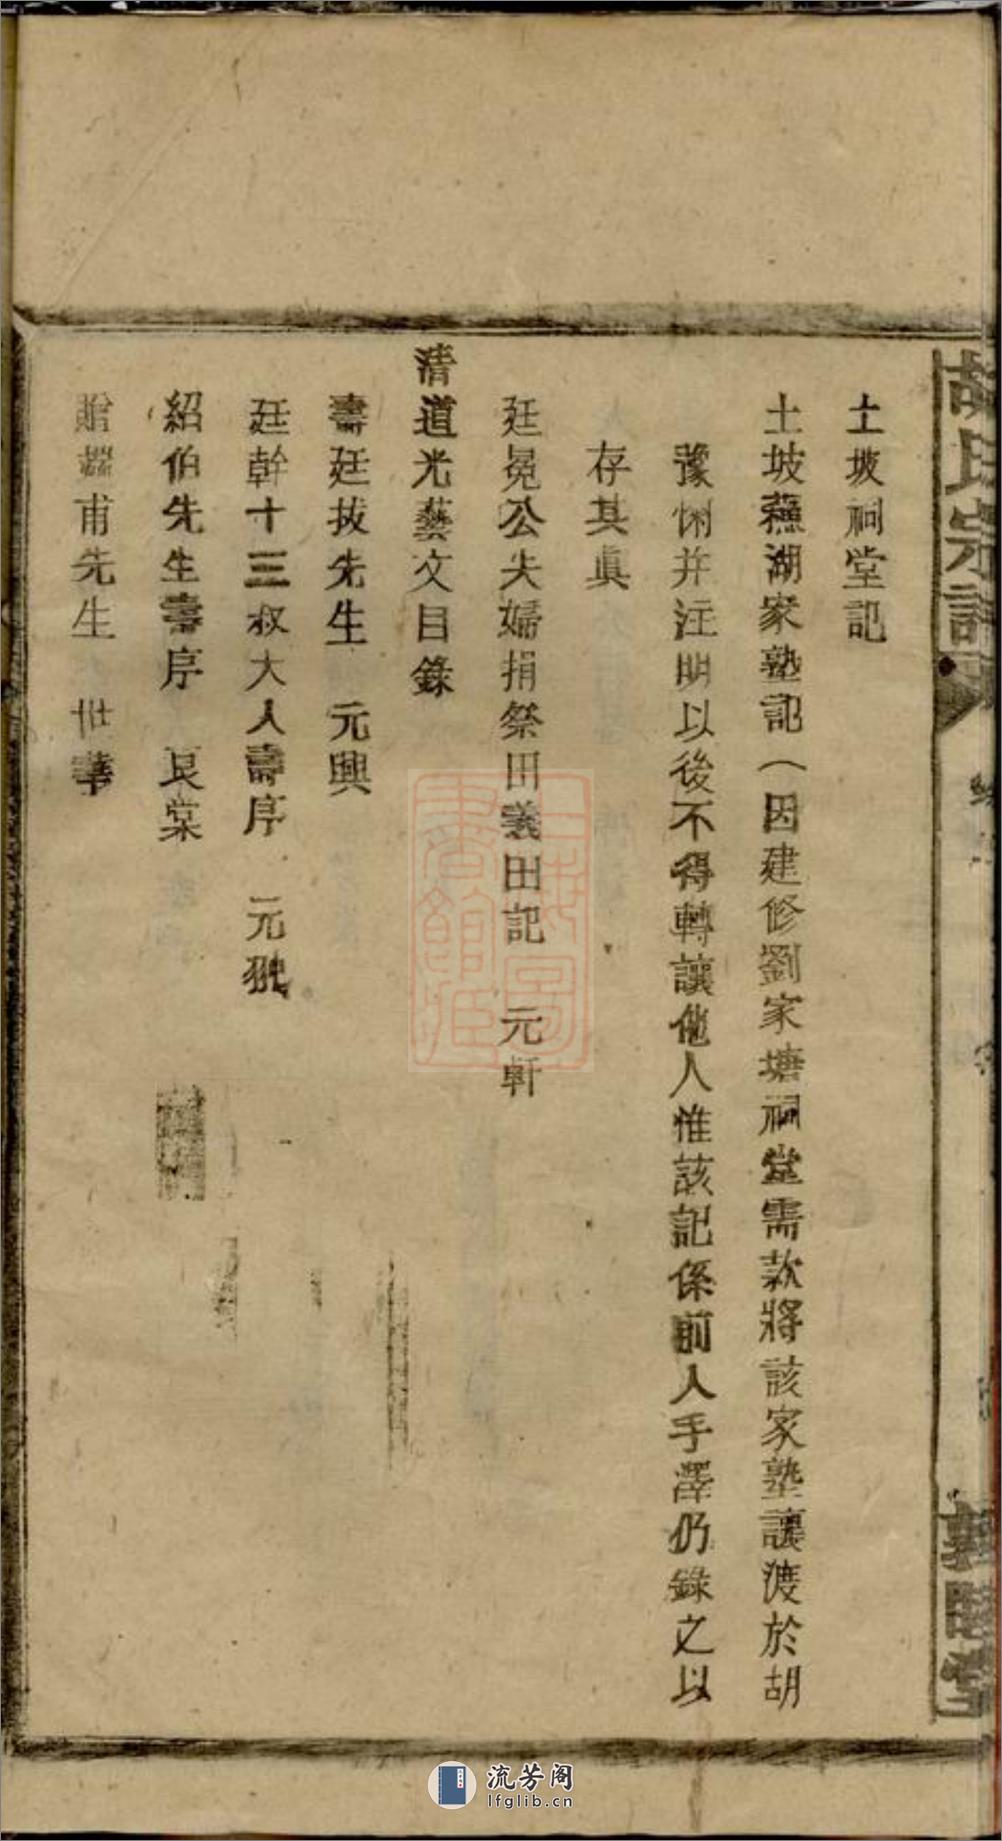 胡氏宗譜
敦睦堂
土坡祠堂記
土坡蘓湖家塾記（因建修劉家塘祠堂需款將該家塾讓渡於胡
豫悧并注明以後不得轉讓他人惟該記係前人手澤仍錄之以
存其眞
廷冕公夫婦捐祭田義田記 元軒
清道光藝文目錄
壽廷拔先生 元興
廷幹十三叔大人壽序 元翀
紹伯先生壽序 艮棠
贈甫先生 世華
上海圖書館藏
流芳阁
lfglib.cn